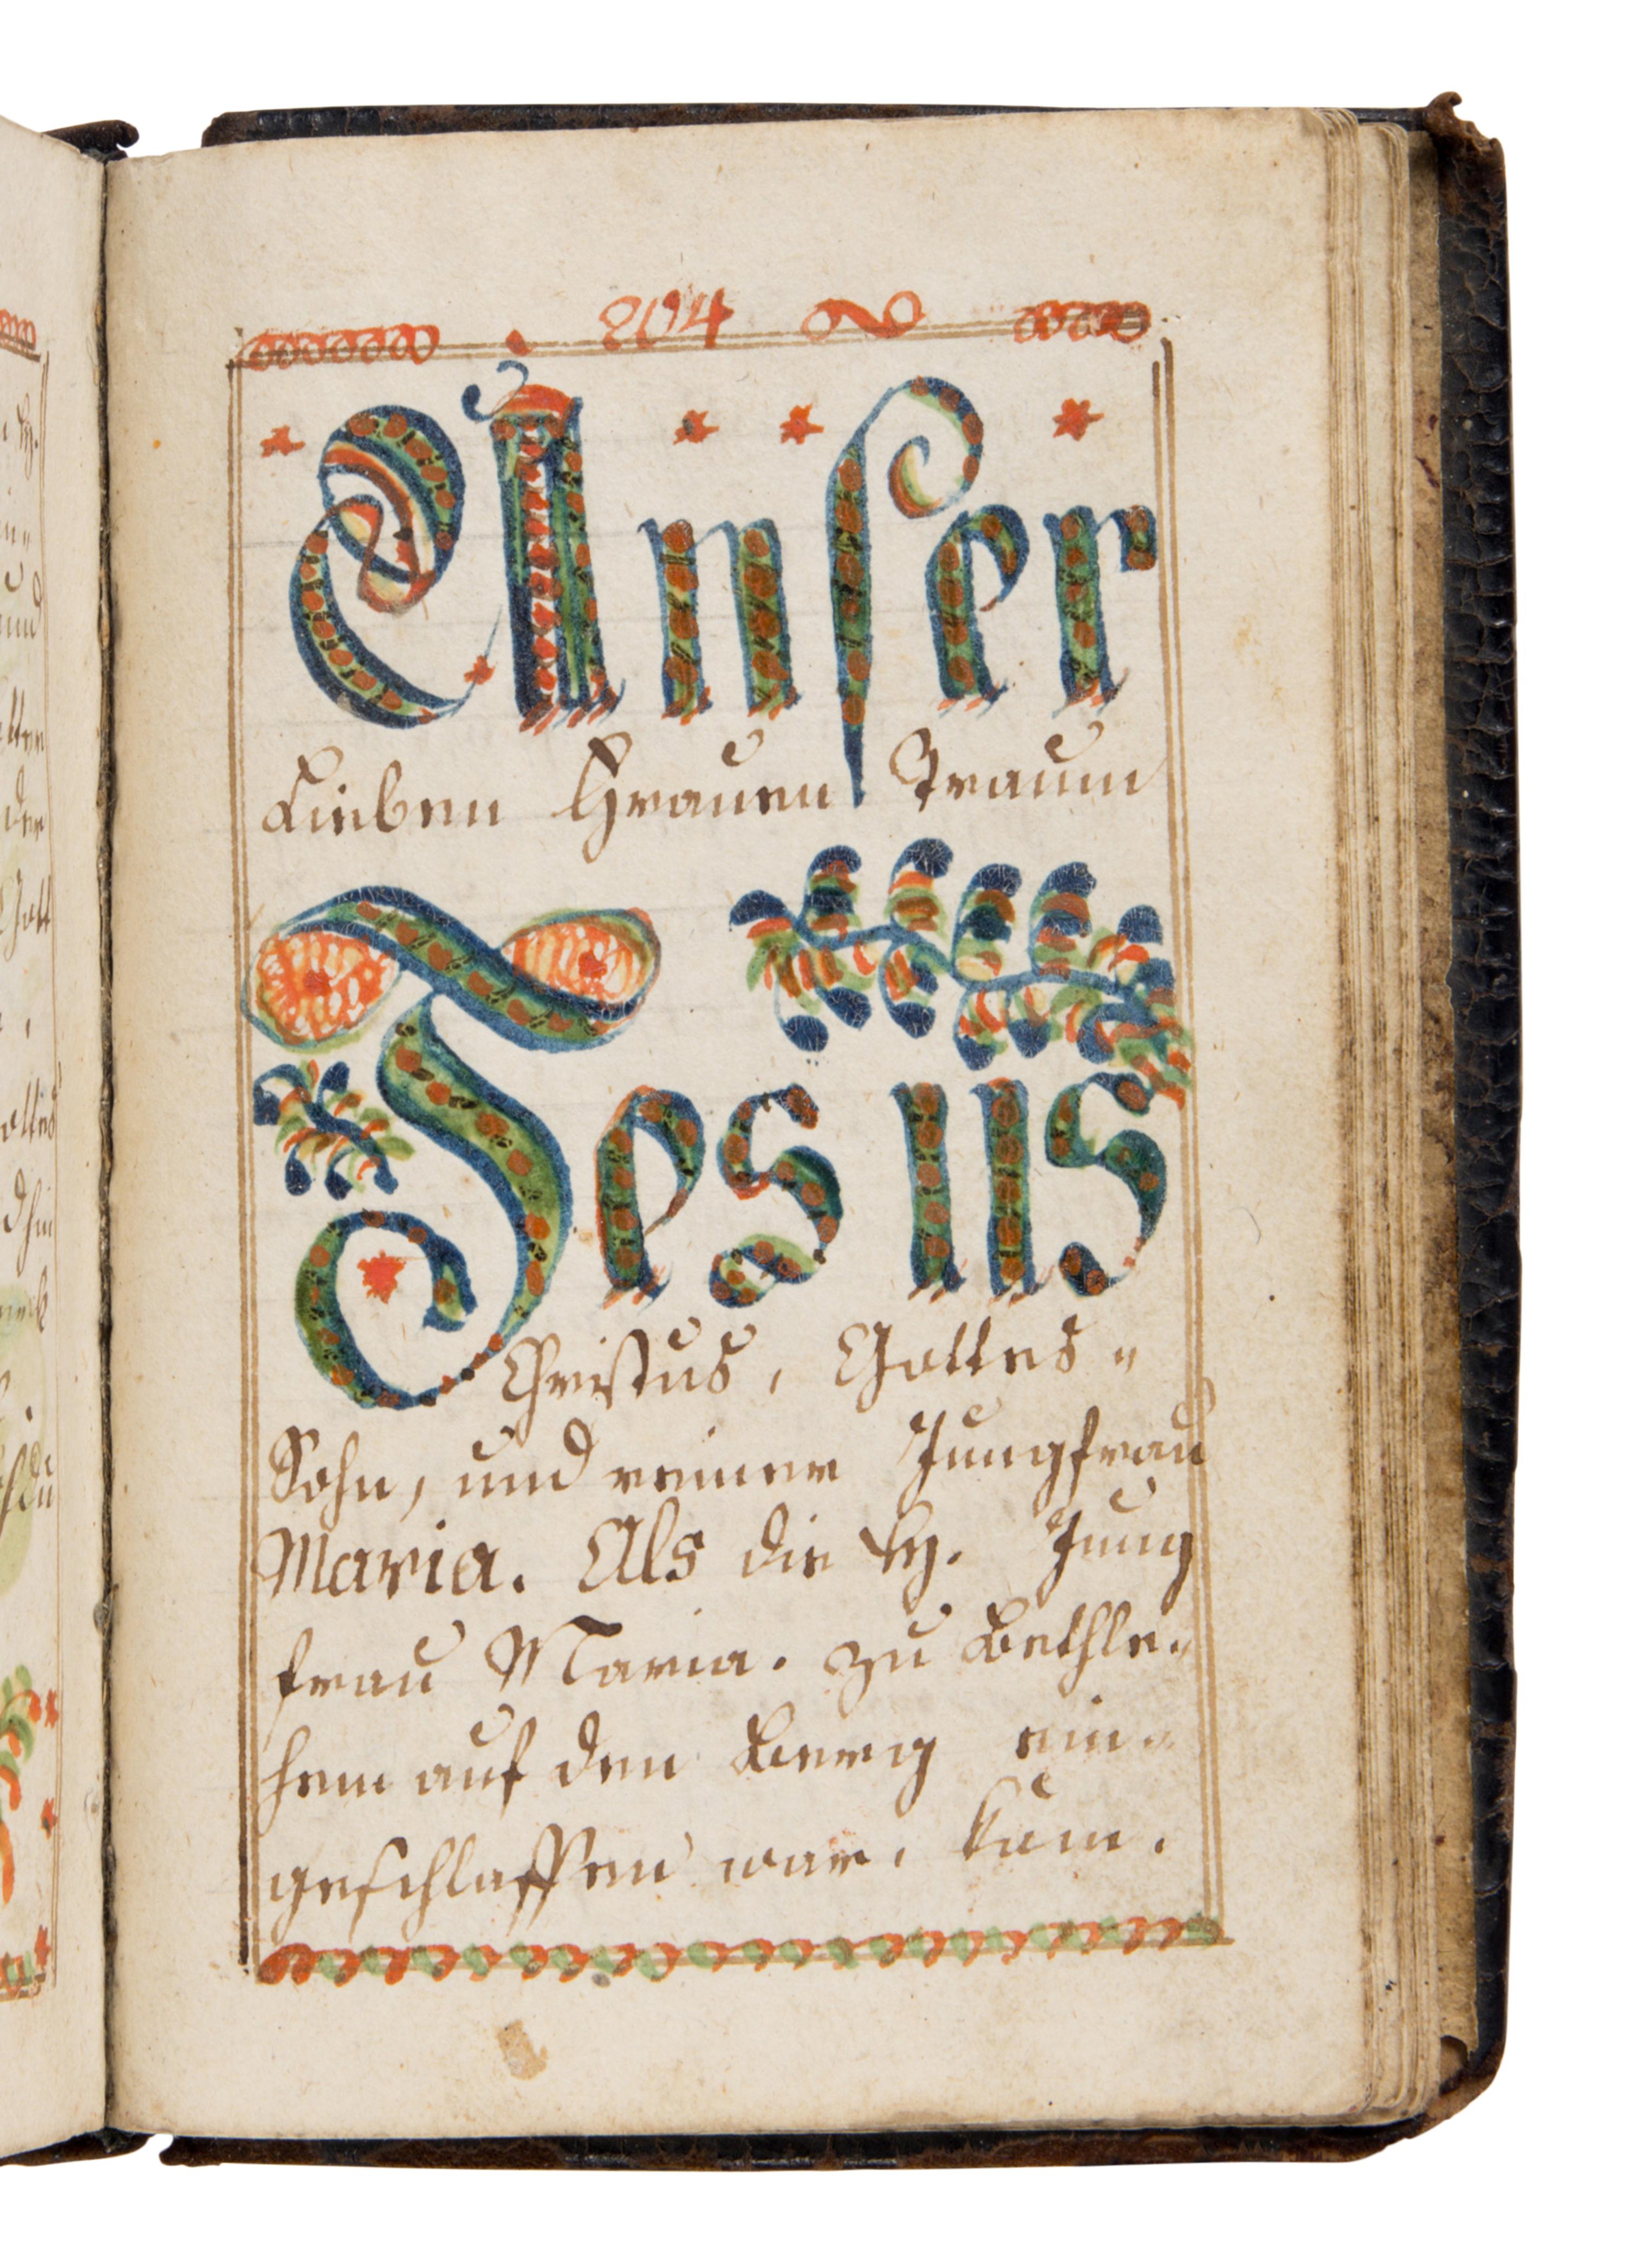 204
Unser
Lieben Frauen Traum
Jesus
Christus, Gottes=
Sohn, und reiner Jungfrau
Maria. Als die hl. Jung
frau Maria. zu Bethle=
hem auf den Berg ein=
geschlaffen war, kam.